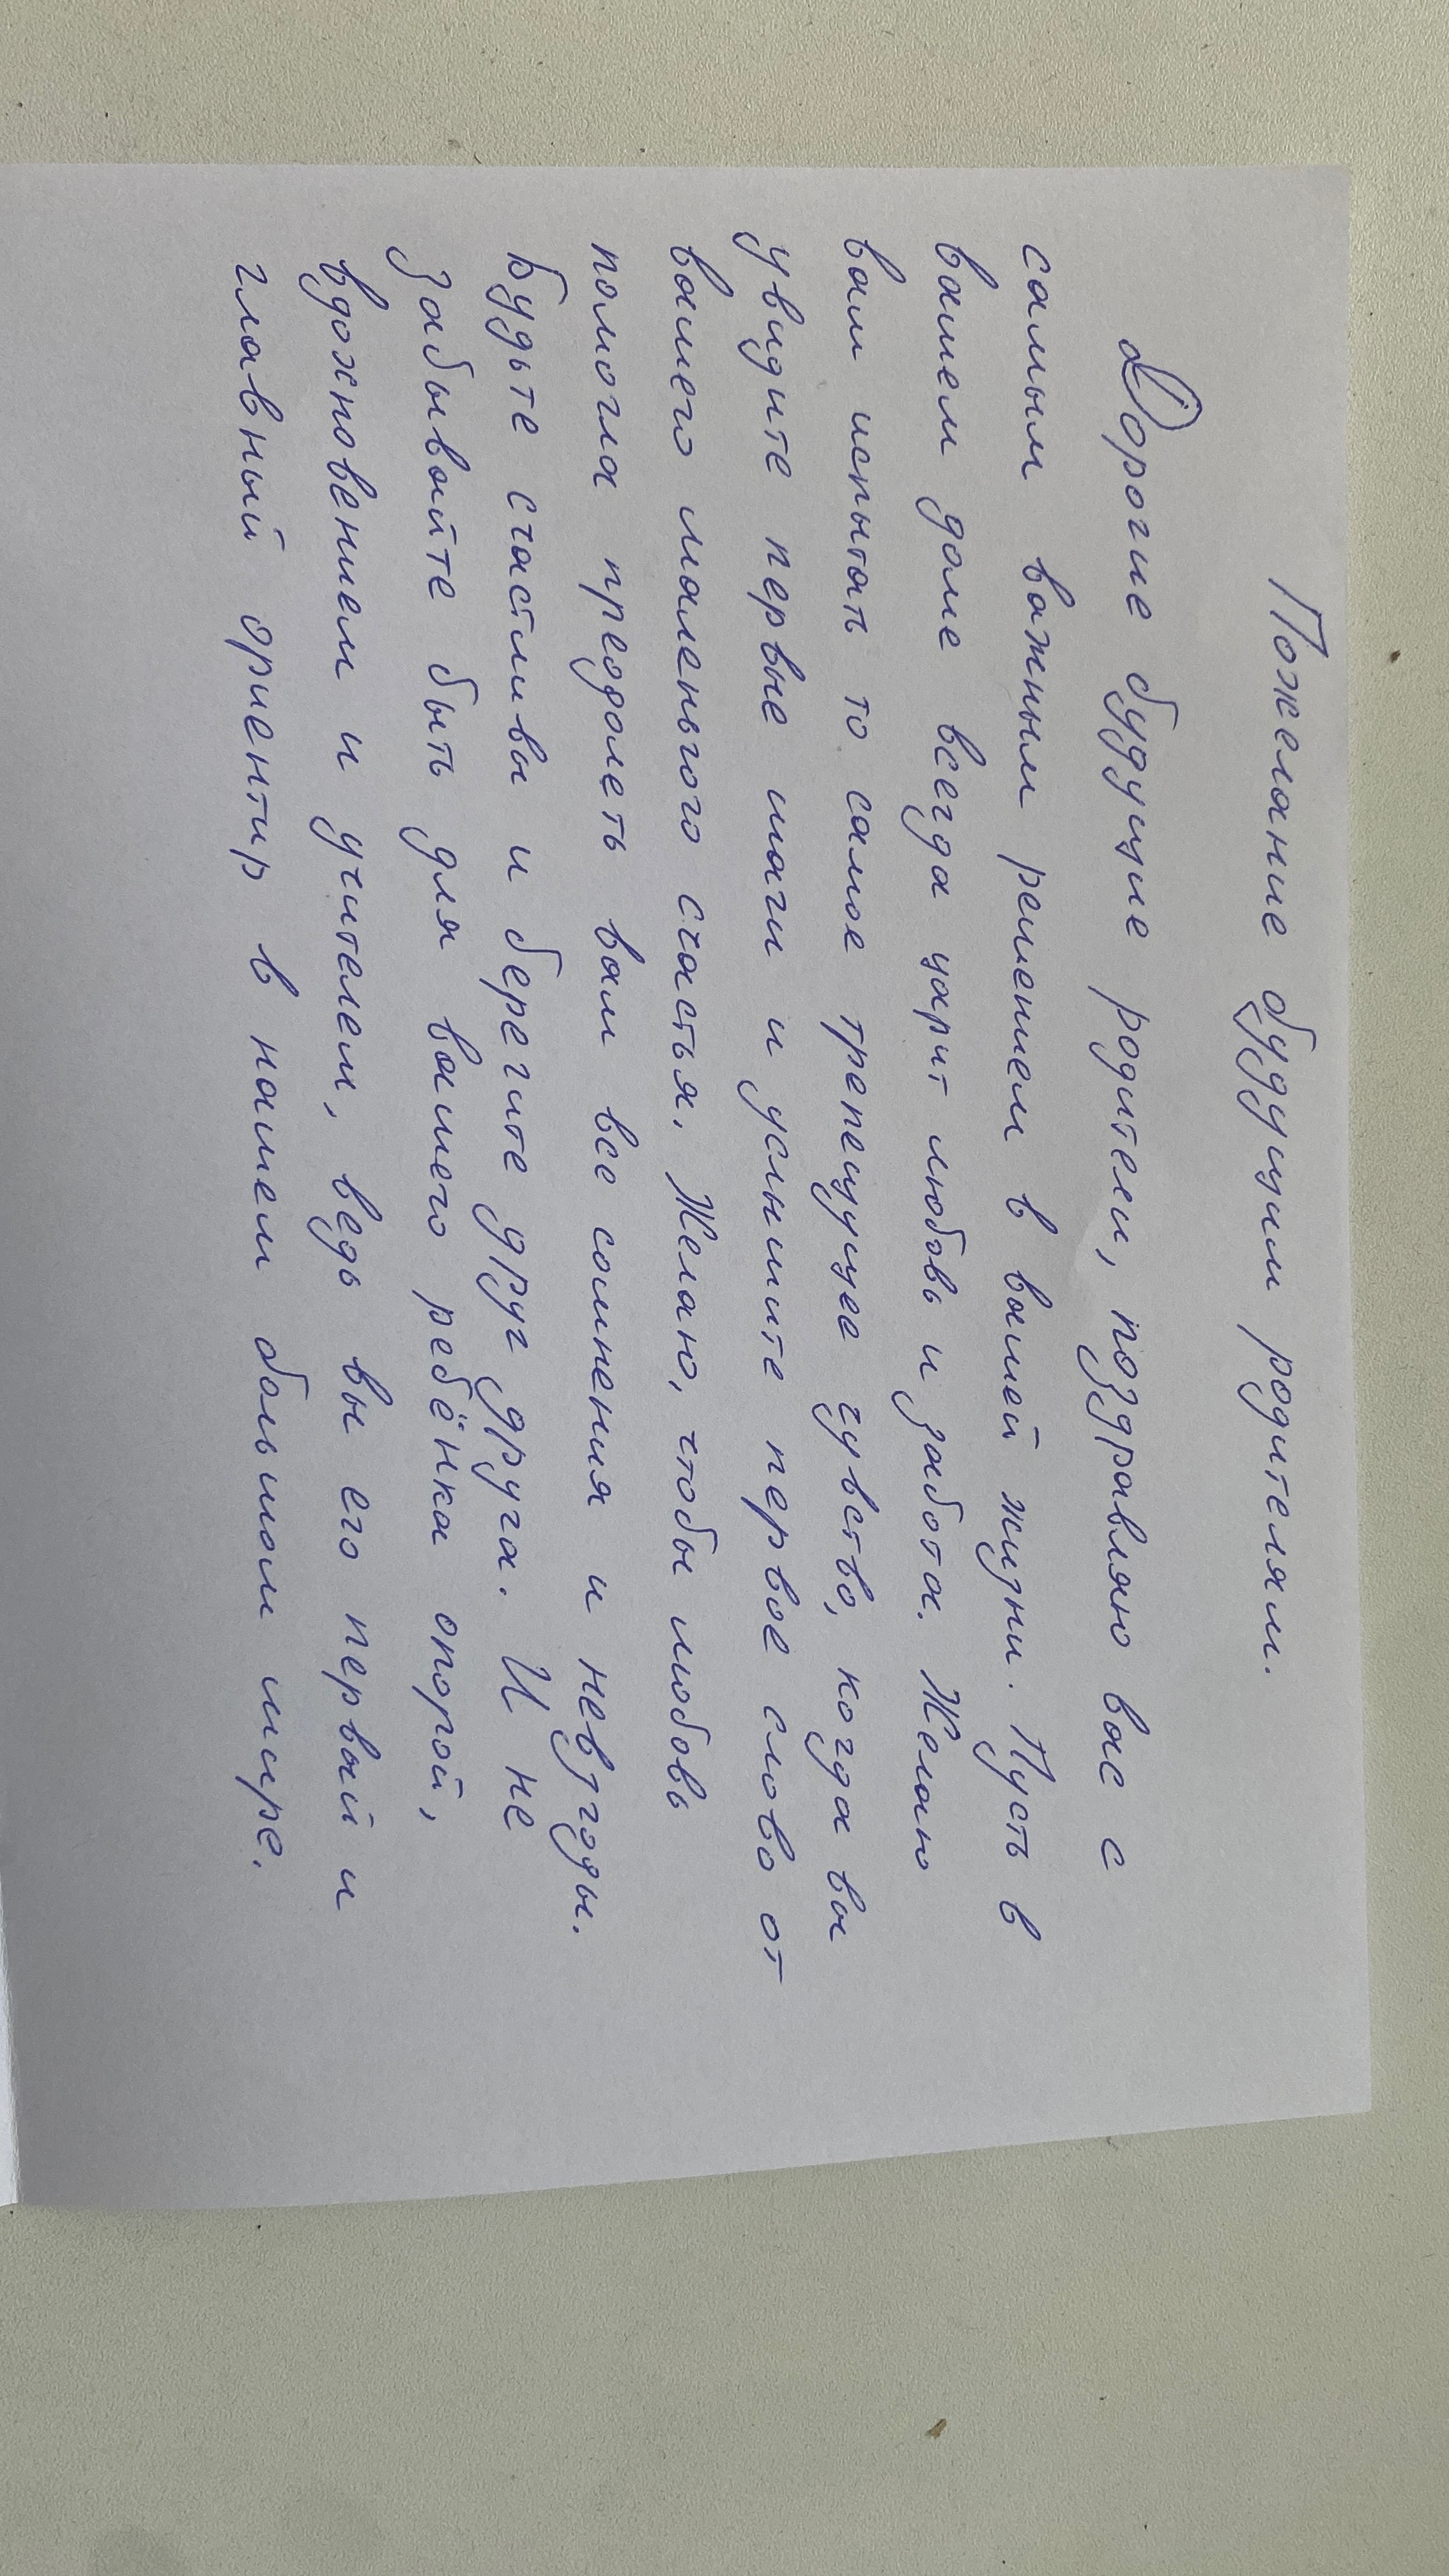 Пожелание будущим родителям.
Дорогие будущие родители, поздравляю вас с
самым важным решением в вашей жизни. Пусть в
вашем доме всегда царит любовь и забота. Желаю
вам испытать то самое трепещущее чувство, когда вы
увидите первые шаги и услышите первое слово от
вашего маленького счастья. Желаю, чтобы любовь
помогла преодолеть вам все сомнения и невзгоды.
Будьте счастливы и берегите друг друга. И не
забывайте быть для вашего ребёнка опорой,
вдохновением и учителем, ведь вы его первый и
главный ориентир в нашем большом мире.